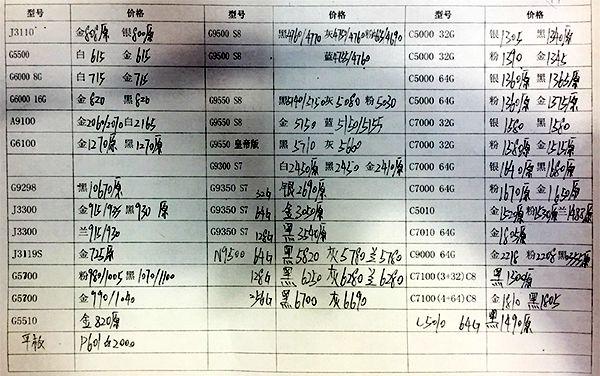 型号 价格 型号 价格 型号 价格
J3110 金808原 银800原 G9500 S8 黑4760/4770 灰4760 粉4690 C5000 32G 银1305 黑1340原
G5500 白615 金615 G9500 S8 蓝4755/4760 C5000 32G 粉1390 金1345
G6000 8G 白715 金715 C5000 64G 银1360原 黑1365原
G6000 16G 金820 黑820 G9550 S8 黑5140/5150 灰5080 粉5030 C5000 64G 粉1360原 金1375原
A9100 金2060/2070 白2165 G9550 S8 金5150 蓝5150/5155 C7000 32G 银1580 黑1580
G6100 金1270原 黑1270原 G9550 皇帝版 黑5710 灰5660 C7000 32G 粉1585原 金1515原
G9300 S7 白2450原 黑2450 金2410原 C7000 64G 银1640原 黑1680原
G9298 黑10670原 G9350 S7 32G 银2690原 C7000 64G 粉1670原 金1650原
J3300 金915/935 黑930原 G9350 S7 64G 金3050原 C5010 金1520原 粉1530原 兰1485原
J3300 兰915/930 G9350 S7 128G 黑3540原 C7010 64G 金1805原
J3119S 金725原 N9500 64G 黑5820 灰5780 兰5780 C9000 64G 金2218 粉2208 黑2355原
G5700 粉980/1005 黑1070/1100 128G 黑6250 灰6280 兰6280 C7100(3+32)C8 黑1500原
G5700 金990/1040 256G 黑6700 灰6690 C7100(4+64)C8 金1810 黑1805
G5510 金820原 C5010 64G 黑1490原
平板 P601白2000